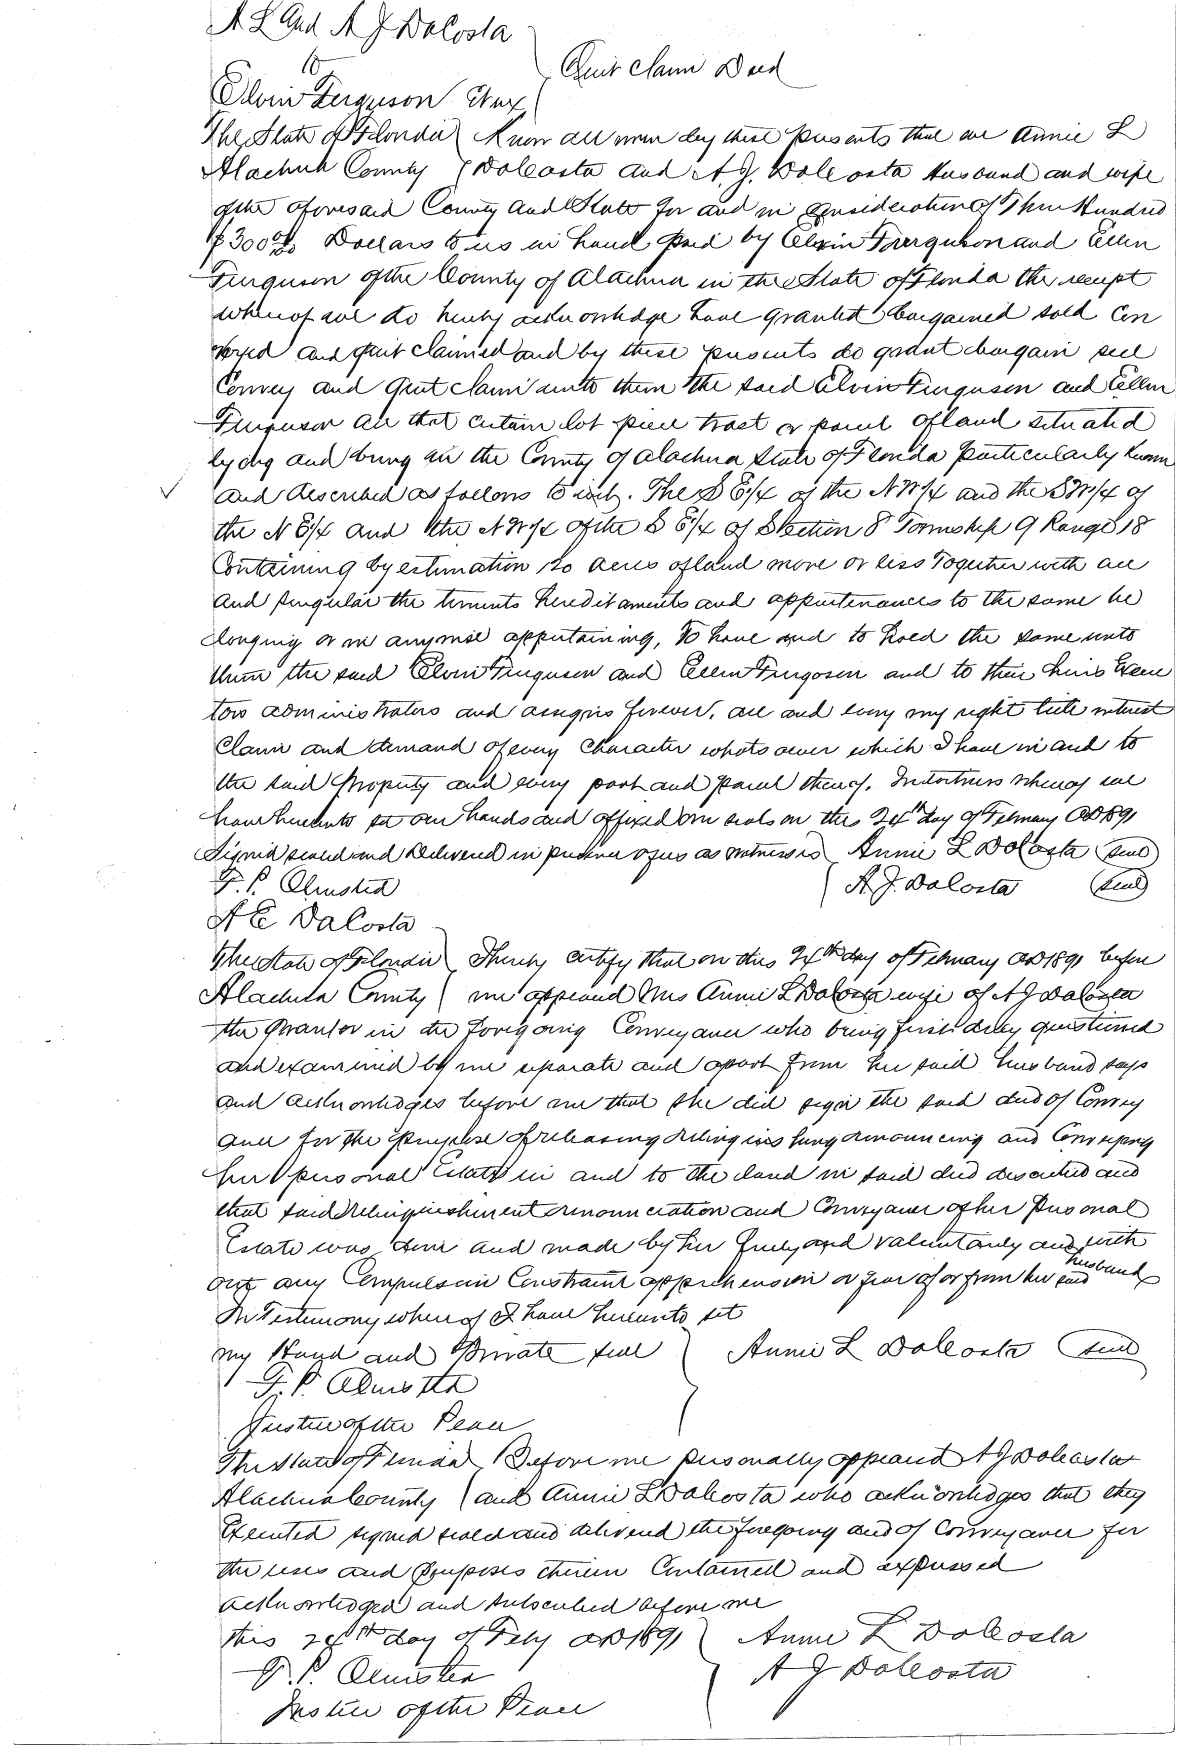 A L and A J DaCosta
to
Quit Claim Deed
Elvin Ferguson Et ux
The State of Florida Know all men by these presents that we Annie L
Alachua County DaCosta and A. J. DaCosta Husband and wife
of the aforesaid County and State for and in consideration of Three Hundred
$300 00/00 Dollars to us in hand paid by Elvin Ferguson and Ellen
Ferguson of the County of Alachua in the State of Florida the receipt
whereof we do hereby acknowledge have granted bargained sold Con
veyed and quit claimed and by these presents do grant bargain sell
Convey and quit claim unto them the said Elvin Ferguson and Ellen
Ferguson all that certain lot piece tract or parcel of land situated
lying and being in the County of Alachua State of Florida particularly known
and described as follows to wit. The S E/4 of the N W/4 and the S W/4 of
the N E/4 and the N W/4 of the S E/4 of Section 8 Township 9 Range 18
Containing by estimation 120 acres of land more or less Together with all
and singular the tenements hereditaments and appurtenances to the same be
longing or in anywise appertaining, To have and to hold the same unto
them the said Elvin Ferguson and Ellen Fergoson and to their heirs Execu
tors administrators and assigns forever. all and every my right title interest
Claim and demand of every character whatsoever which I have in and to
the said Property and every part and parcel thereof. In witness whereof we
have hereunto set our hands and affixed our seals on this 24th day of February AD 1891
Signed sealed and Delivered in presence of us as witnesses Annie L DaCosta seal
F. P. Olmsted A. J. DaCosta seal
A E DaCosta
The State of Florida I hereby certify that on this 24th day of February AD 1891 before
Alachua County me appeared Mrs Annie L DaCosta wife of A J DaCosta
the Grantor in the foregoing Conveyance who being first duly questioned
and examined by me separate and apart from her said husband says
and acknowledges before me that she did sign the said deed of Convey
ance for the purpose of releasing relinquishing renouncing and Conveying
her personal Estate in and to the land in said deed described and
that said relinquishment renounciation and Conveyance of her Personal
Estate was done and made by her freely and valuntarily and with
out any Compulsion Constraint apprehension or fear of or from her said husband
In Testimony whereof I have hereunto set
my Hand and Private seal Annie L DaCosta seal
F. P. Olmsted
Justice of the Peace
The State of Florida Before me personally appeared A J DaCosta
Alachua County and Annie L DaCosta who acknowledges that they
Executed signed sealed and delivered the foregoing deed of Conveyance for
the uses and purposes therein Contained and expressed
acknowledged and subscribed before me
this 24th day of Feby AD 1891 Annie L DaCosta
F. P. Olmsted A J DaCosta
Justice of the Peace